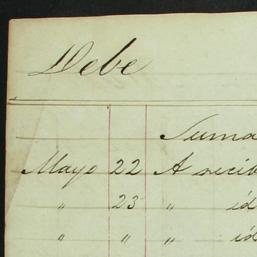 Debe
Suma
Mayo 22 A recib
" 23 " id
" " " id